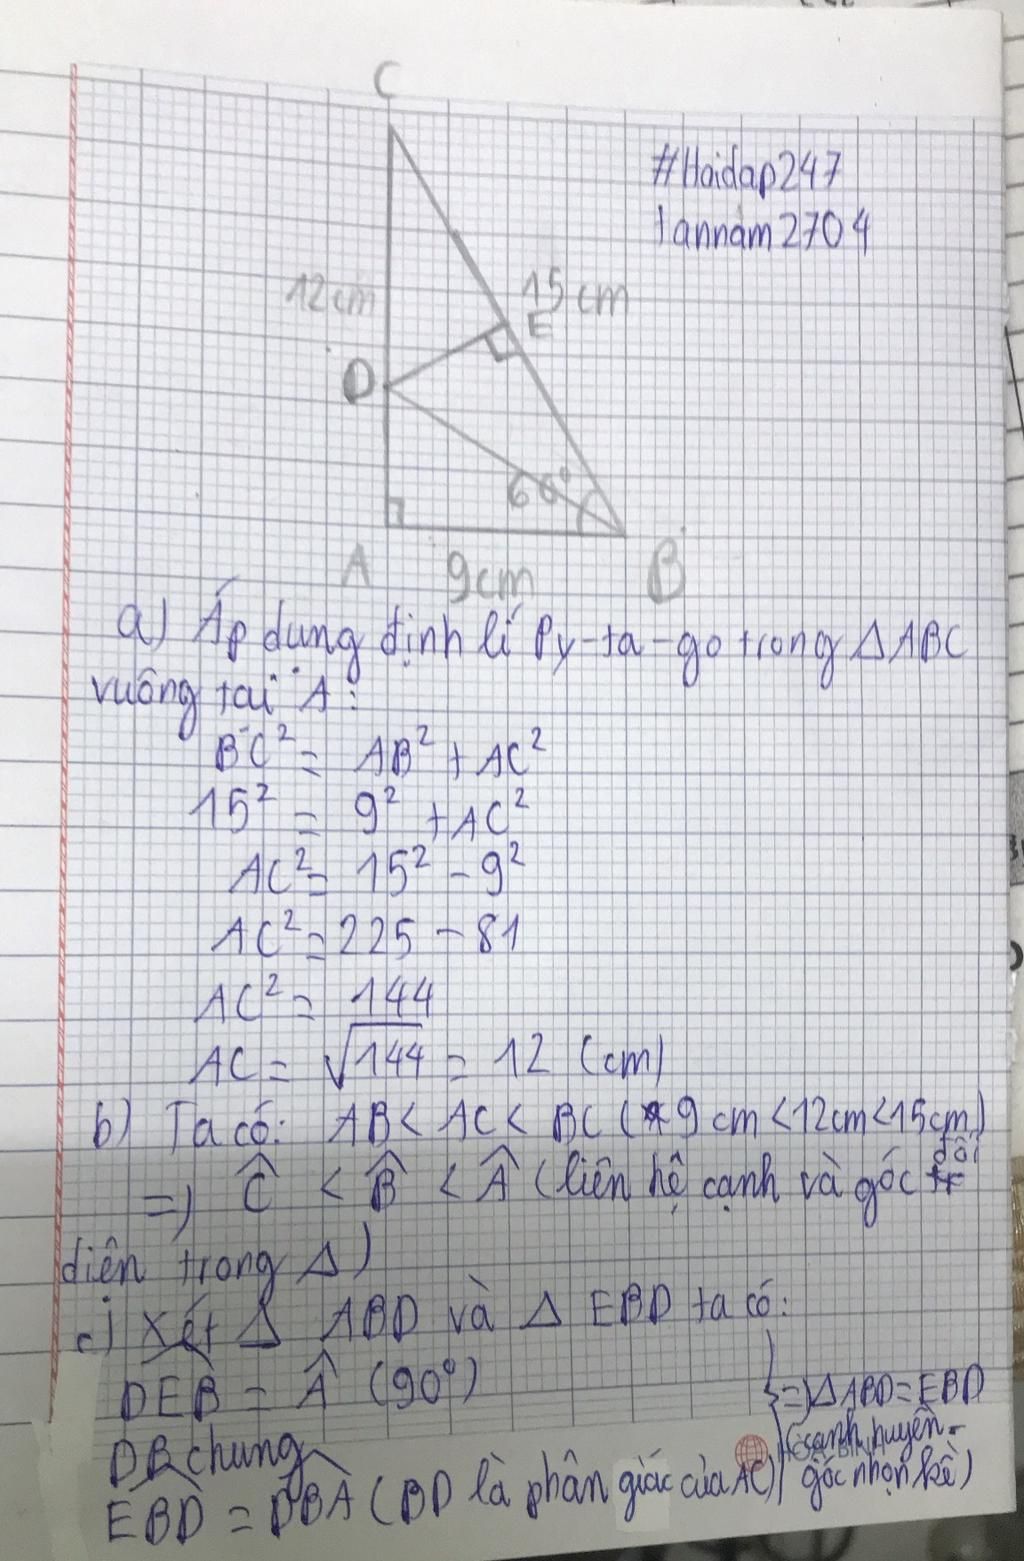 C
#Hoidap247
tannam2704
12cm
15cm
E
D
60°
A
9cm
B
a) Áp dụng định lí Py-ta-go trong △ABC
vuông tại A:
BC² = AB² + AC²
15² = 9² + AC²
AC² = 15² - 9²
AC² = 225 - 81
AC² = 144
AC = √144 = 12 (cm)
b) Ta có: AB < AC < BC (9cm < 12cm < 15cm)
=) Ĉ < B̂ < Â (liên hệ cạnh và góc đối
diện trong △)
c) Xét △ ABD và △ EBD ta có:
DEB = Â (90°)
DB chung
EBD = DBA (BD là phân giác của AC)
=) △ABD = EBD
(cạnh huyền-
góc nhọn kề)